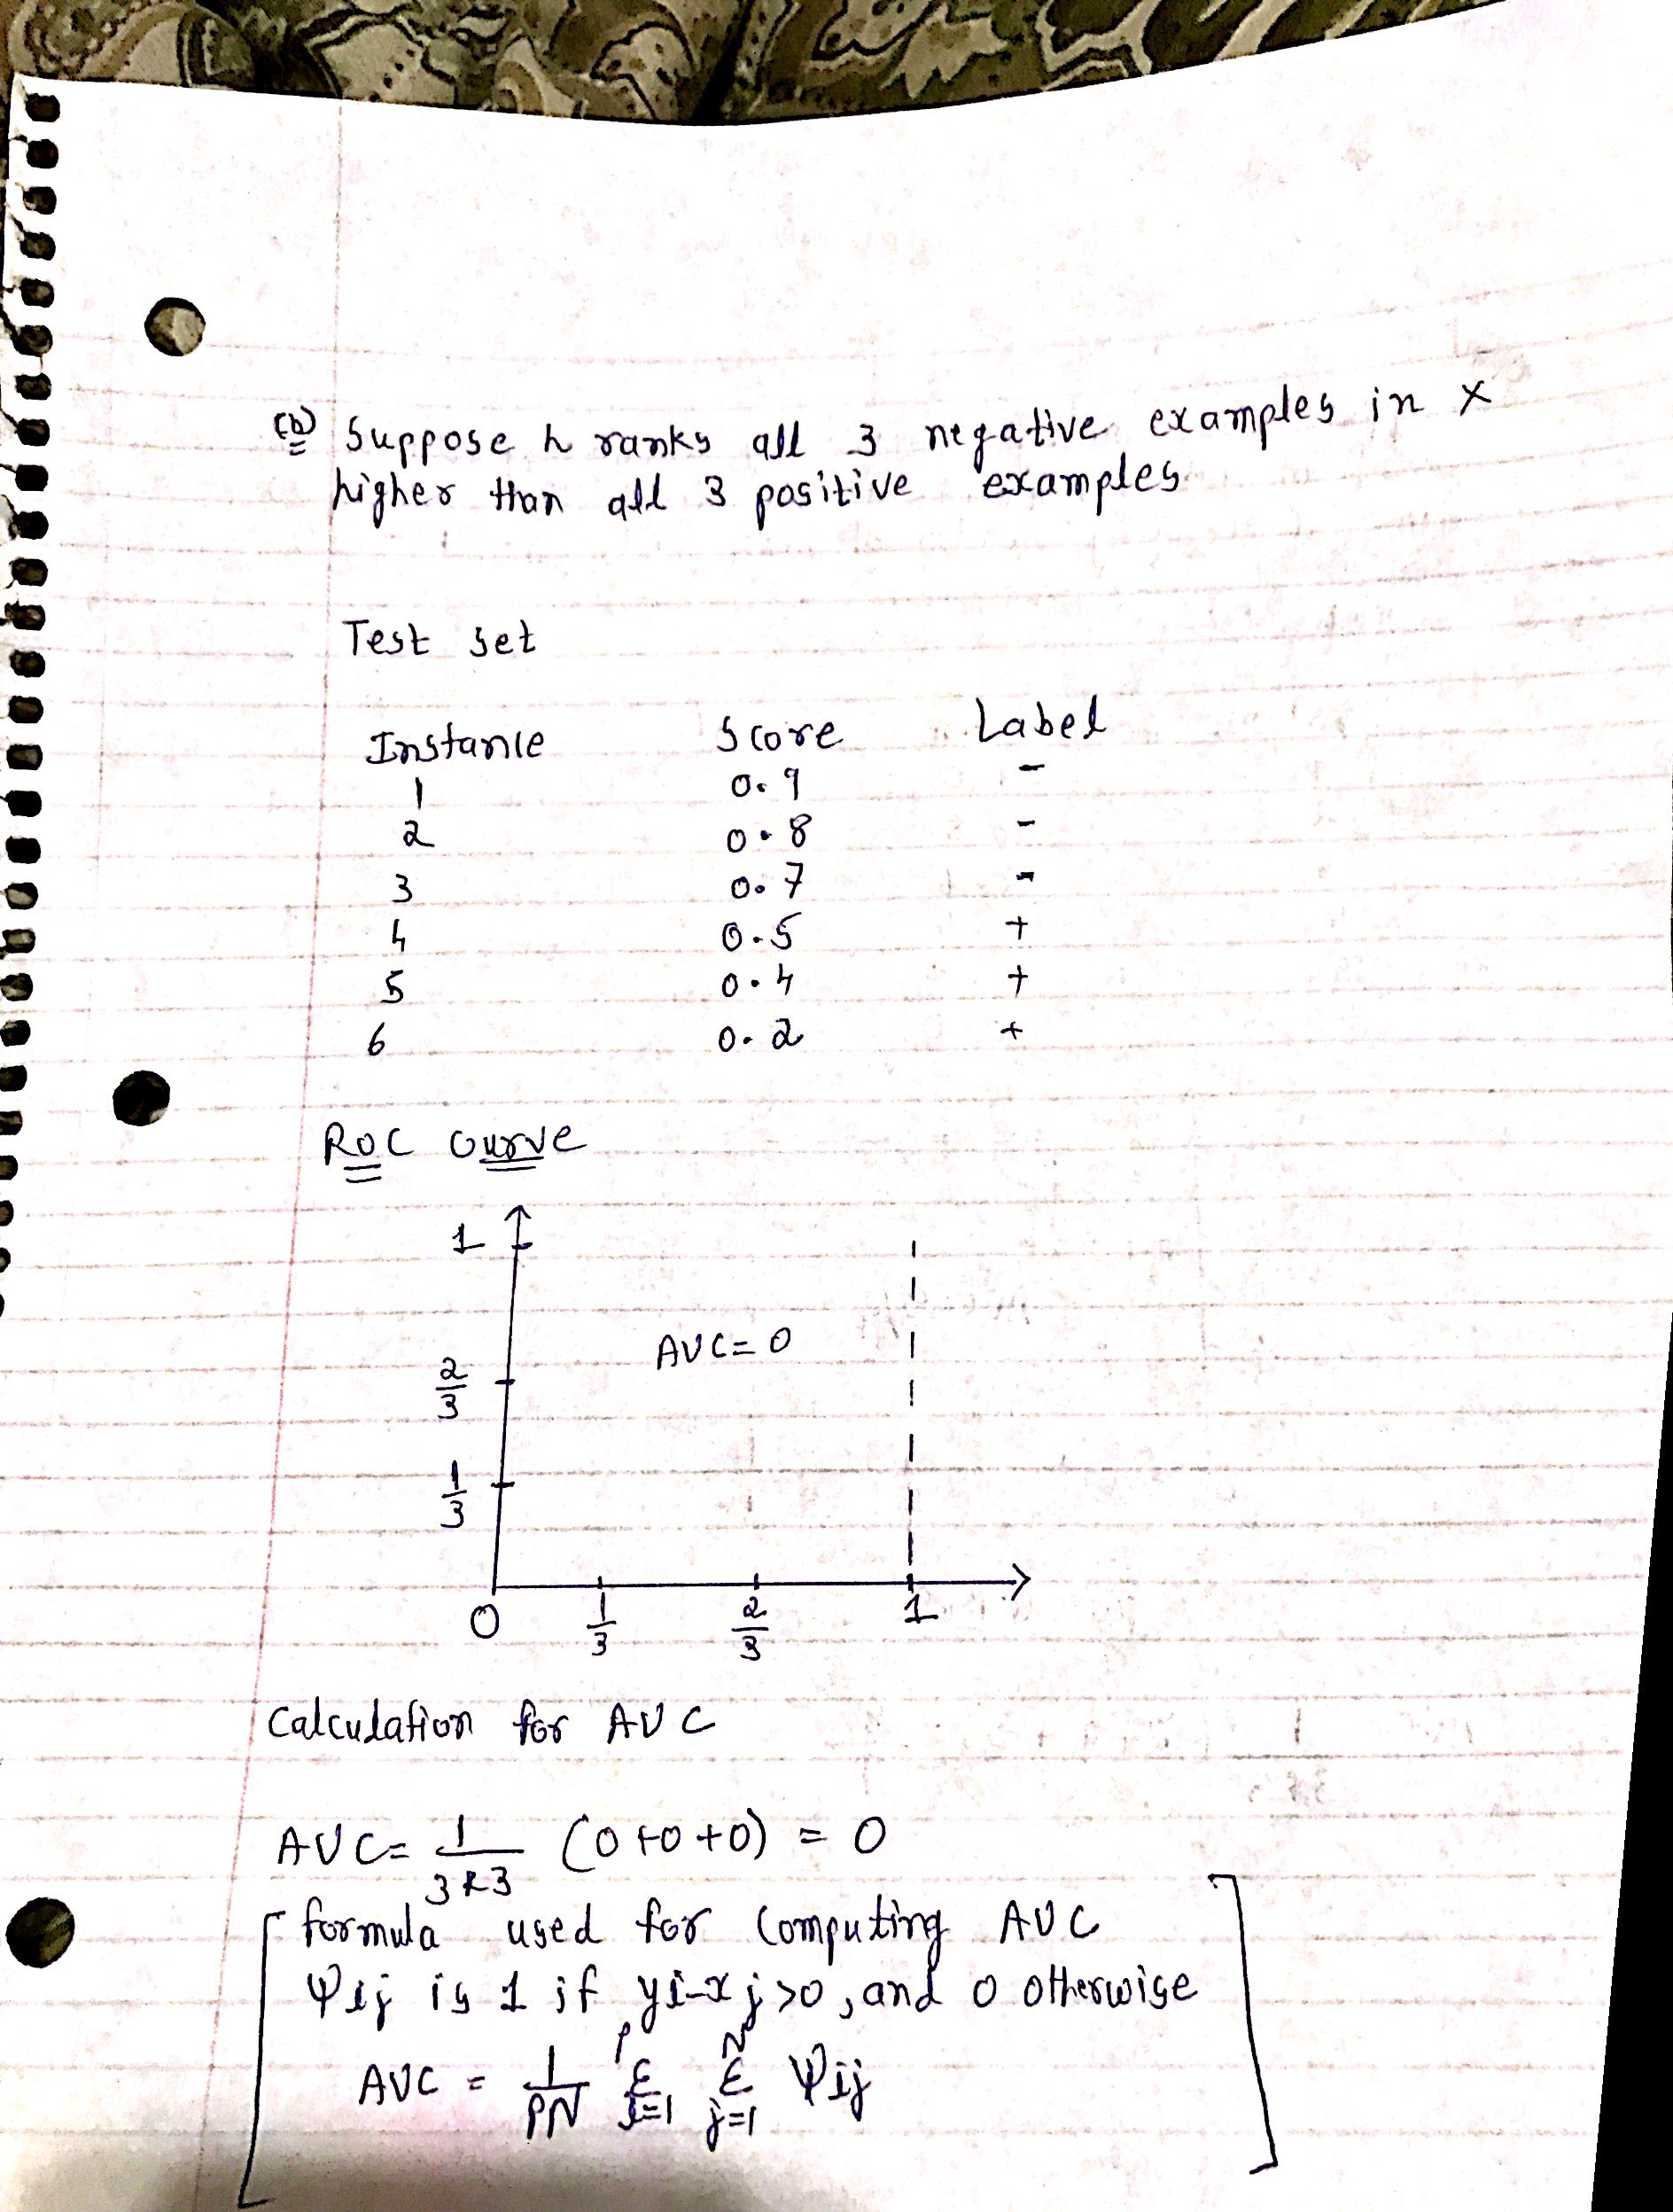 (b) Suppose h ranks all 3 negative examples in X
higher than all 3 positive examples
Test set
Instance Score Label
1 0.9 -
2 0.8 -
3 0.7 -
4 0.5 +
5 0.4 +
6 0.2 +
ROC Curve
1
AUC=0
2/3
1/3
0 1/3 2/3 1
Calculation for AUC
AUC = 1/(3*3) (0+0+0) = 0
[formula used for computing AUC
Ψij is 1 if yi-xj>0, and 0 otherwise
AUC = 1/PN Σ_{i=1}^{P} Σ_{j=1}^{N} Ψij]